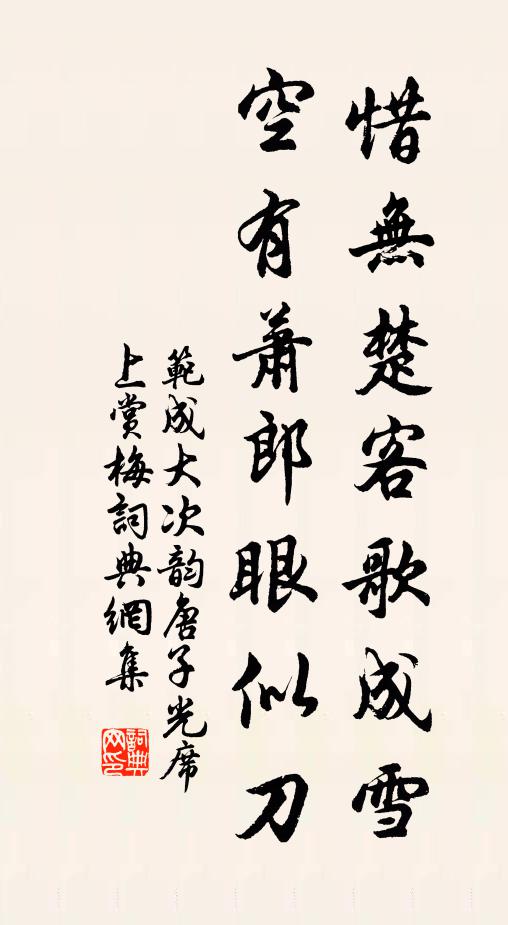 惜無楚客歌成雪
空有蕭郎眼似刀
範成大次韵唐子光席
上賞梅詞典網集
詞典网印